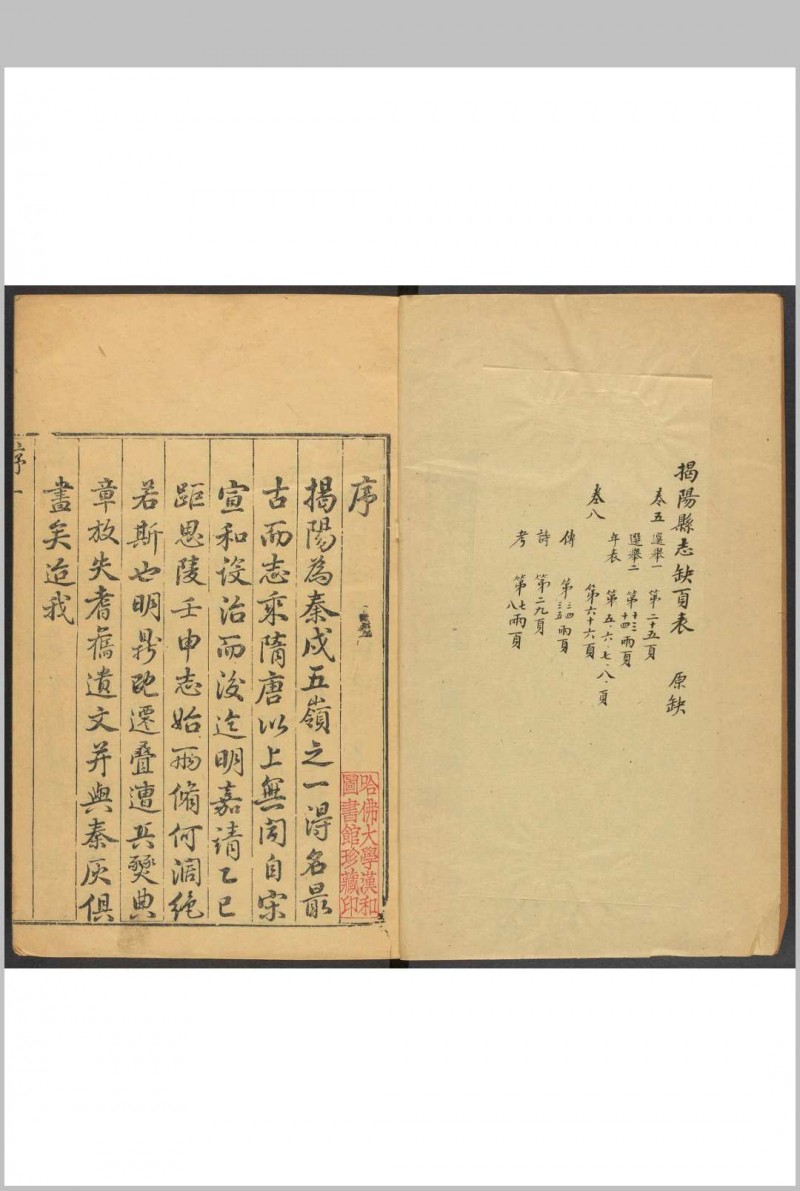 揭陽縣志缺頁表　原缺
卷五 選舉一 第二十五頁
選舉二 第十三十四兩頁
年表 第五·六·七·八·頁
卷八 第六十六頁
傳 第三四三五兩頁
詩 第二九頁
考 第七八兩頁
序
揭陽為秦戍五嶺之一得名最
古而志乘隋唐以上無聞自宋
宣和設治而後迄明嘉靖乙巳
距思陵壬申志始兩脩何凋絶
若斯也明鼎既遷疊遭兵燹典
章放失耆舊遺文并與秦灰俱
盡矣迨我
序 一
哈佛大學漢和
圖書館珍藏印